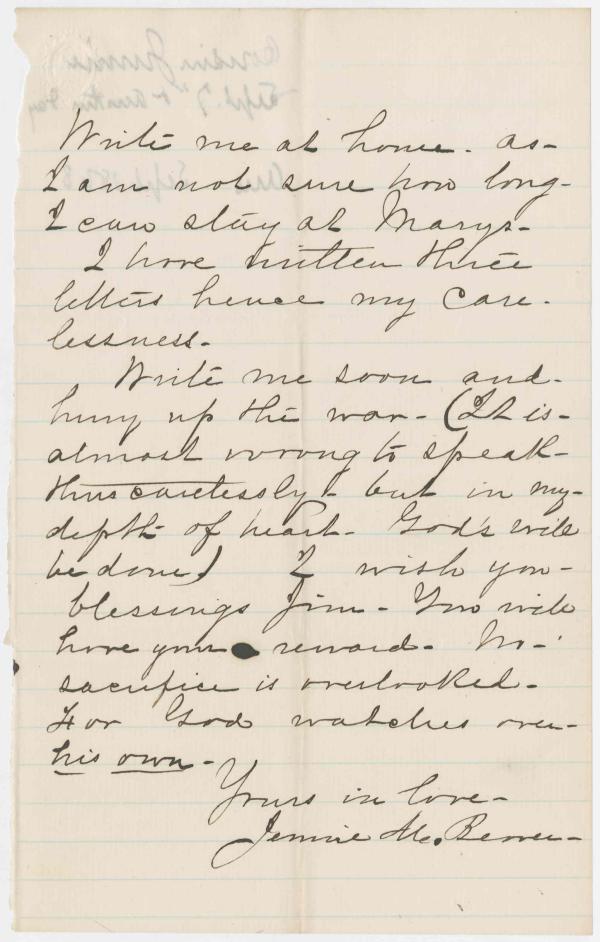 Write me at home. as-
I am not sure how long-
I can stay at Marys-
I have written three
letters hence my care-
lessness-
Write me soon and-
hurry up the war- (It is-
almost wrong to speak-
thus carelessly- but in my-
depth of heart- God's will
be done) I wish you-
blessings Jim- You will
have your reward- No-
sacrifice is overlooked-
For God watches over-
his own-
Yours in love-
Jennie Mc.